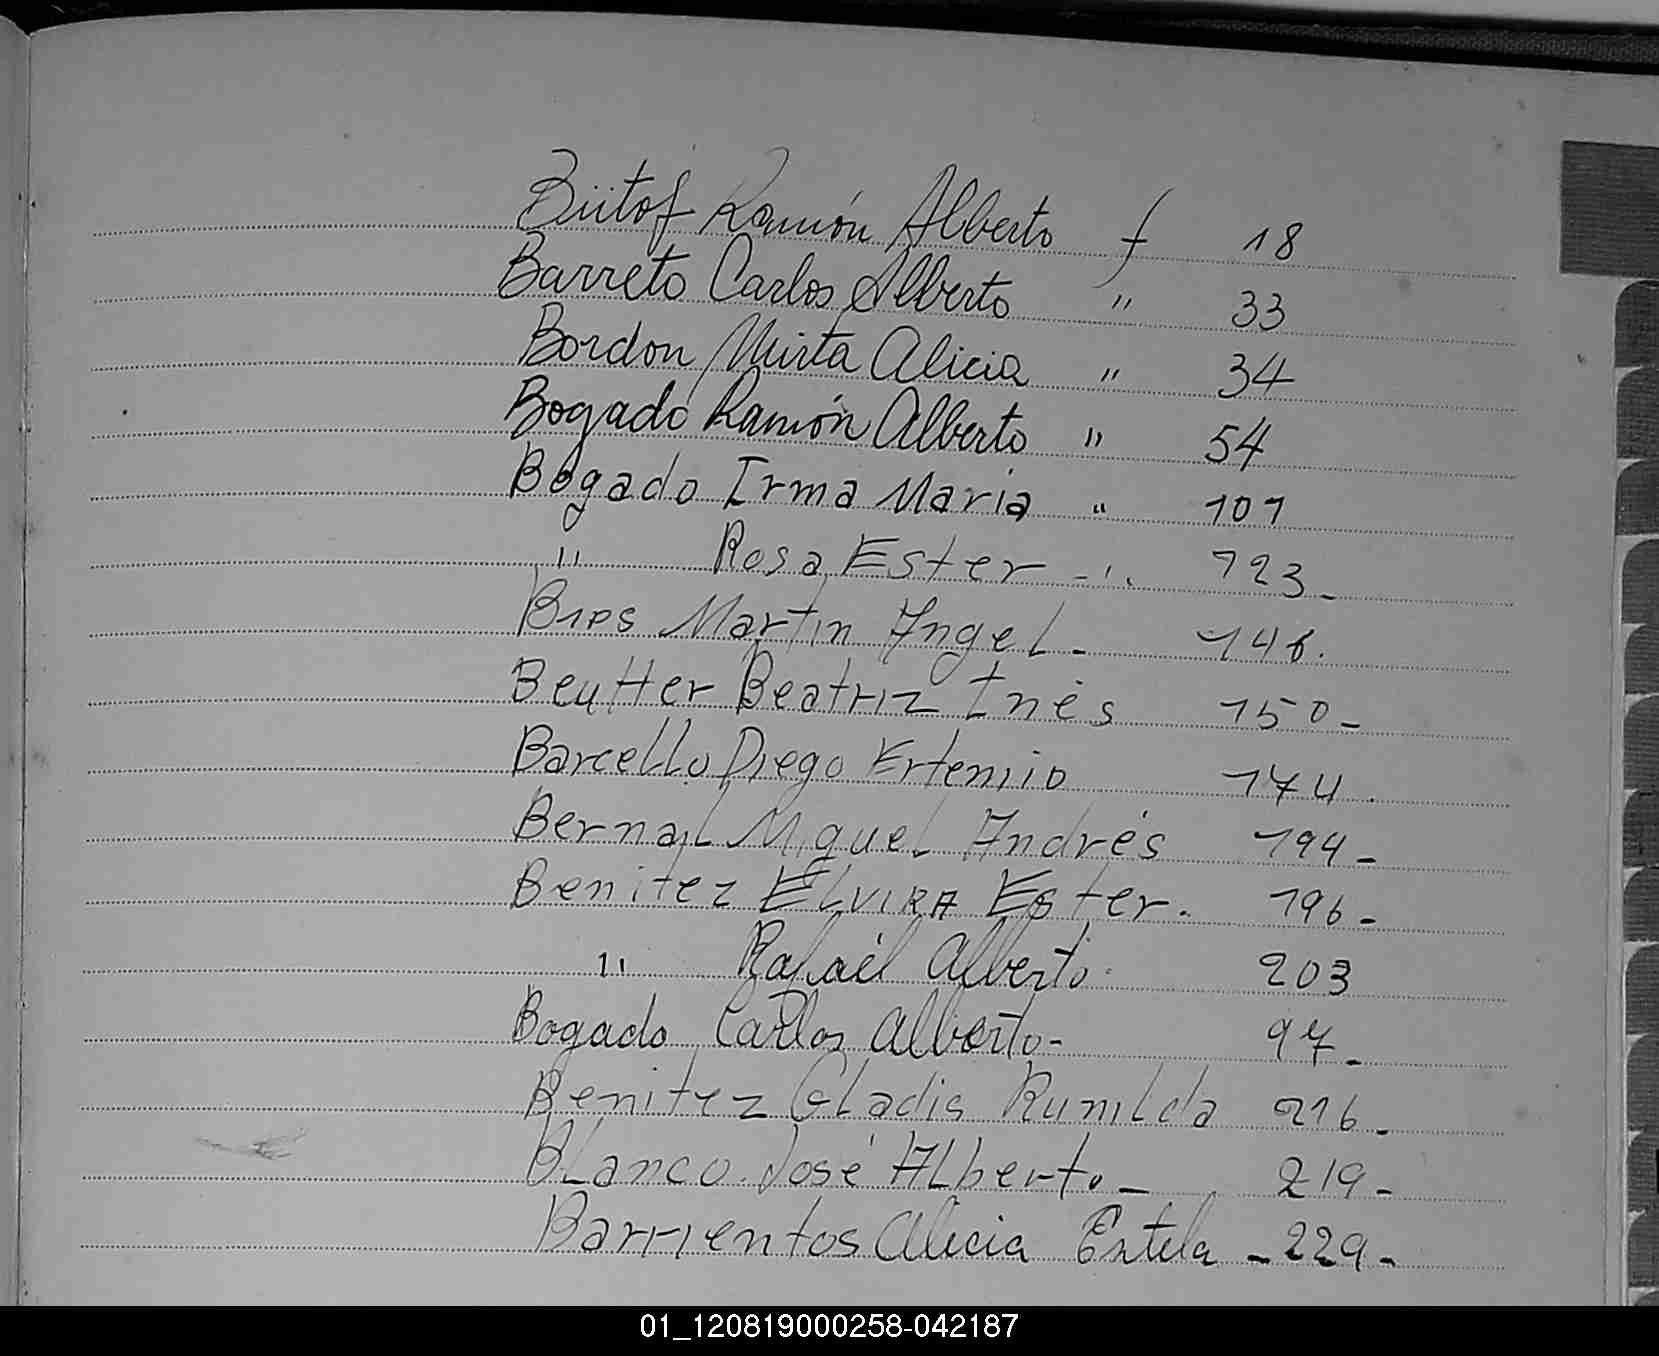 Büitof Ramón Alberto f 18
Barreto Carlos Alberto " 33
Bordon Mirta Alicia " 34
Bogado Ramón Alberto " 54
Bogado Irma Maria " 101
" Rosa Ester - " 123_
Bips Martin Angel - 146.
Beutter Beatriz Inés 150_
Barcello Diego Ertemio 174.
Bernal Miguel Andrés 194_
Benitez ELVIRA Ester. 196_
" Rafael Alberto. 203
Bogado Carlos Alberto- 97_
Benitez Gladis Runilda 216_
Blanco José Alberto_ 219_
Barrientos Alicia Estela - 229-
01_120819000258-042187